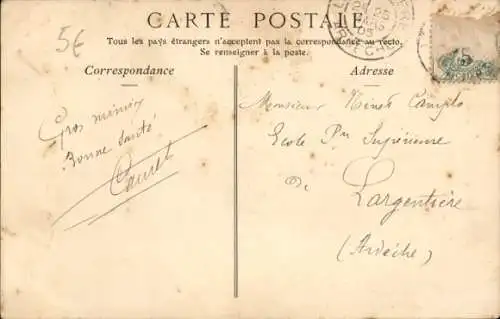 CARTE POSTALE
Tous les pays étrangers n'acceptent pas la correspondance au recto.
Se renseigner à la poste.
5€
Correspondance
Adresse
Gros
Bonne Santé
Monsieur
Ecole Pre Supérieure
De
Largentière
(Ardèche)